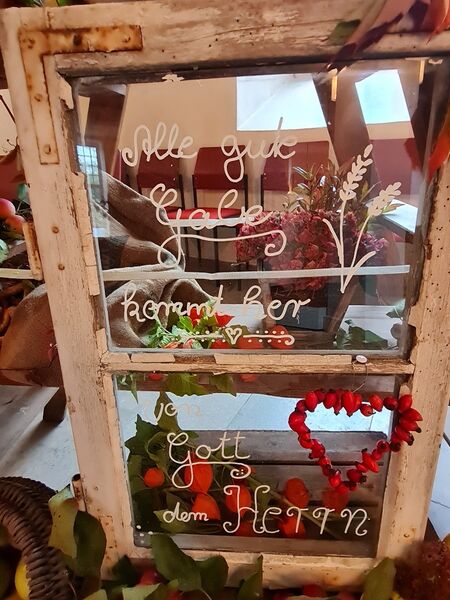 Alle gute
Gabe
kommt her
von
Gott
dem HERRN